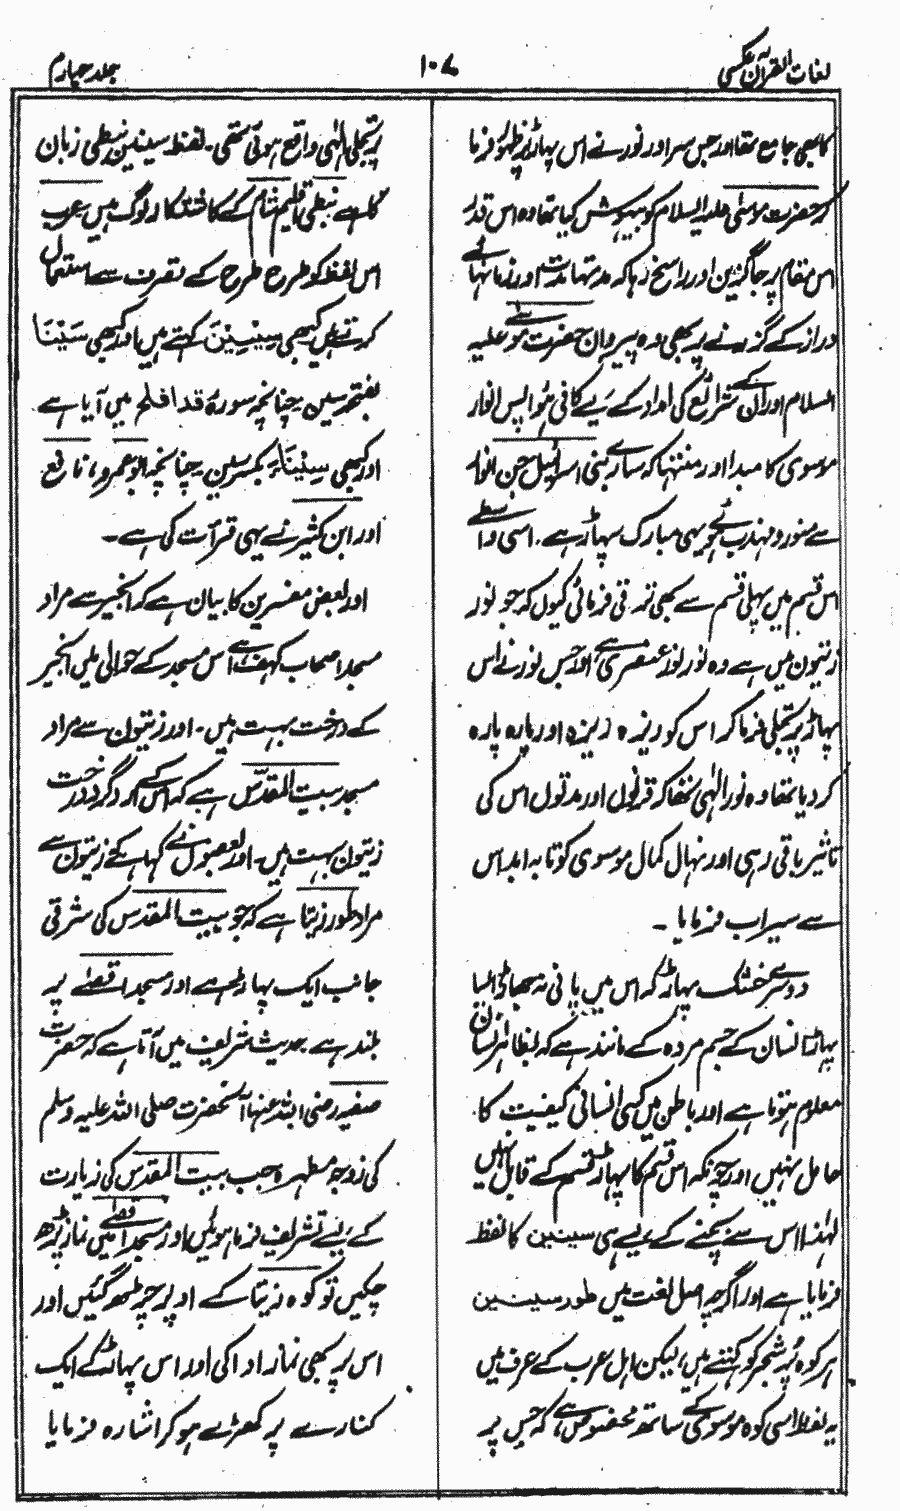 لغات القرآن عکسی
۱۰۷
جلد چہارم
کا بھی جامع تھا اور جس سر اور نور نے اس پہاڑ پر ظہور فرما
کر حضرت موسٰی علیہ السلام کو بیہوش کیا تھا وہ اس قدر
اس مقام پر جاگزین اور راسخ رہا کہ مدتہا مدت اور زمانہا
دراز کے گزرنے پر بھی وہ پیروانِ حضرت موسٰی علیہ
السلام اور ان کے شرائع کی امداد کے لیے کافی ہوا پس انوار
موسوی کا مبدا اور منتہا کہ سارے بنی اسرائیل جن انوار
سے منور و مہذب ہوئے یہی مبارک پہاڑ ہے۔ اسی واسطے
اس قسم میں پہلی قسم سے بھی ترقی فرمائی کیوں کہ جو نور
زیتون میں ہے وہ نور عنصری ہے اور جس نور نے اس
پہاڑ پر تجلی فرما کر اس کو ریزہ ریزہ اور پارہ پارہ
کر دیا تھا وہ نور الٰہی تھا کہ قرنوں اور مدتوں اس کی
تاثیر باقی رہی اور نہال کمال موسوی کو تا بہ ابد اس
سے سیراب فرمایا ۔
دوسرے خشک پہاڑ کہ اس میں پانی نہ سبھا اڈا لسا
پہاڑ انسان کے جسم مردہ کے مانند ہے کہ بظاہر انسان
معلوم ہوتا ہے اور باطن میں کسی انسانی کیفیت کا
حامل نہیں اور چونکہ اس قسم کا پہاڑ قسم کے قابل نہیں
لہٰذا اس سے بچنے کے لیے ہی سینین کا لفظ
فرمایا ہے اور اگرچہ اصل لغت میں طور سینین
ہر کوہ پر شجر کو کہتے ہیں، لیکن اہل عرب کے عرف میں
یہ لفظ اسی کوہ موسوی کے ساتھ مخصوص ہے، کہ جس پر
پر تجلی الٰہی واقع ہوئی تھی۔ لفظ سینین نبطی زبان
کا ہے نبطی اقلیم شام کے کاشتکار لوگ ہیں عرب
اس لفظ کو طرح طرح کے تصرف سے استعمال
کرتے ہیں کبھی سِینِینَ کہتے ہیں اور کبھی سَیْنَا
بفتح سین۔ چنانچہ سورۂ قد افلح میں آیا ہے
اور کبھی سِیْنَاءَ بکسر سین۔ چنانچہ ابوعمرو، نافع
اور ابن کثیر نے یہی قرآت کی ہے ۔
اور بعض مفسرین کا بیان ہے کہ انجیر سے مراد
مسجد اصحاب کہف ہے اس مسجد کے حوالی میں انجیر
کے درخت بہت ہیں۔ اور زیتون سے مراد
مسجد بیت المقدس ہے کہ اس کے گرد گرد درخت
زیتون بہت ہیں۔ اور بعضوں نے کہا ہے کہ زیتون سے
مراد طور زیتا ہے کہ جو بیت المقدس کی شرقی
جانب ایک پہاڑ ہے اور مسجد اقصٰی پر
بلند ہے حدیث شریف میں آتا ہے کہ حضرت
صفیہ رضی اللہ عنہا آنحضرت صلی اللہ علیہ وسلم
کی زوجہ مطہرہ جب بیت المقدس کی زیارت
کے لیے تشریف فرما ہوئیں اور مسجد اقصٰی میں نماز پڑھ
چکیں تو کوہ زیتا کے اوپر چڑھ گئیں اور
اس پر بھی نماز ادا کی اور اس پہاڑ کے ایک
کنارے پر کھڑے ہو کر اشارہ فرمایا